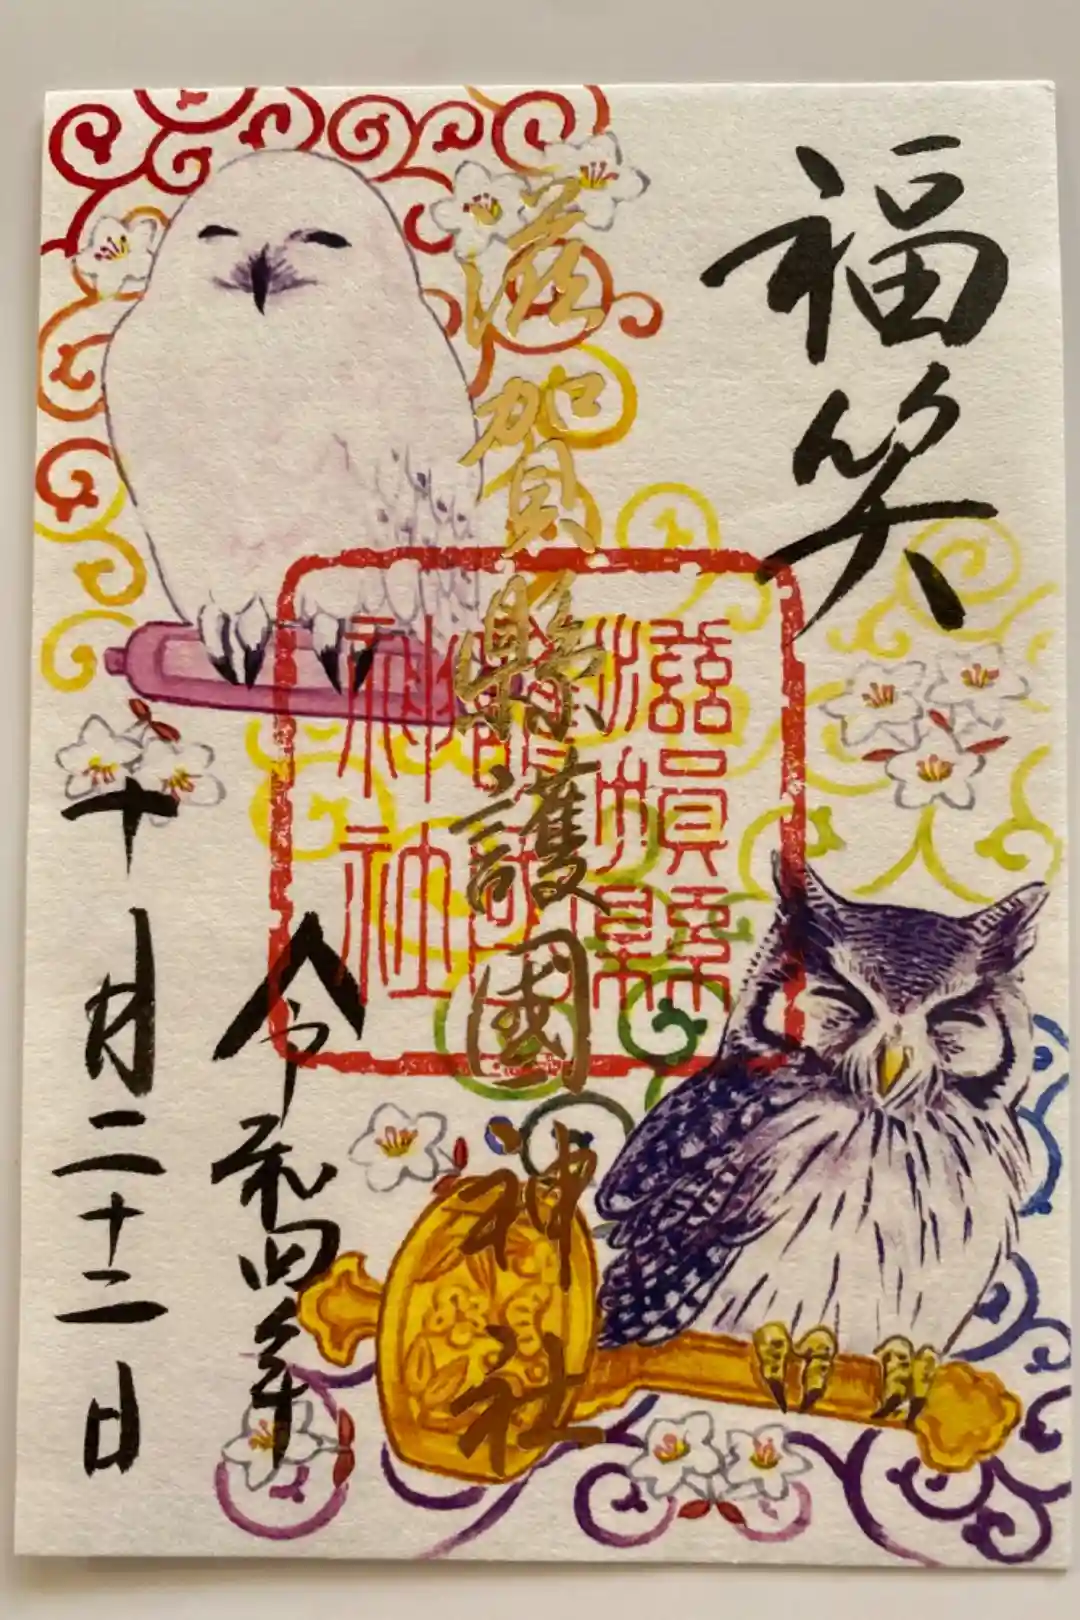 福笑
滋賀縣護國神社
滋賀縣
護國
神社
令和四年
十月二十二日